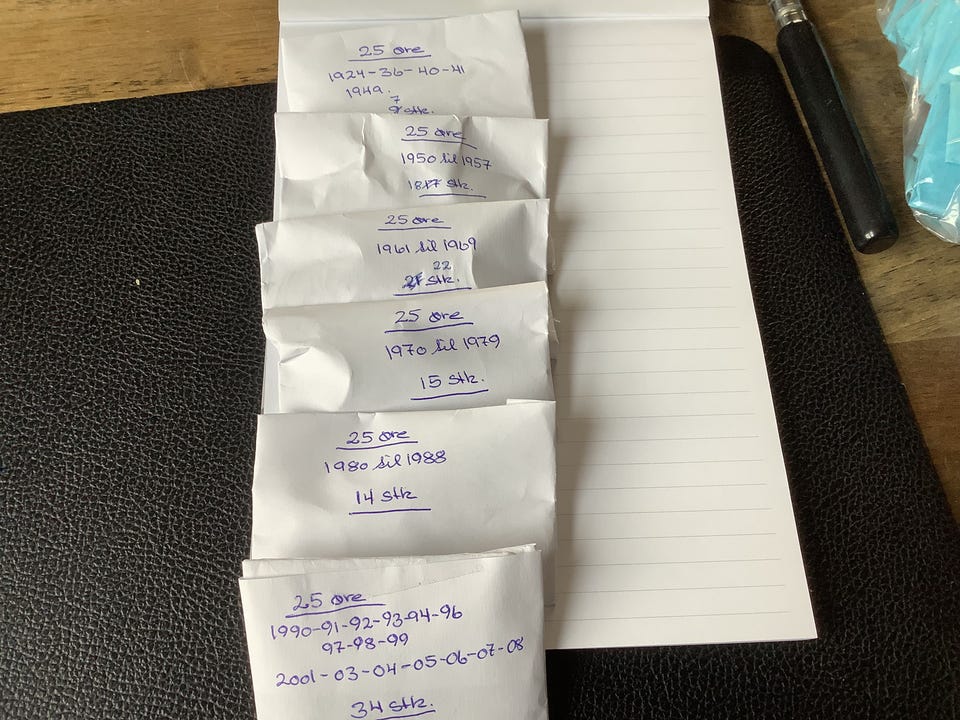 25 øre
1924-36-40-41
1949.
7
stk.
25 øre
1950 til 1957
18 stk.
25 øre
1961 til 1969
22
stk.
25 øre
1970 til 1979
15 stk.
25 øre
1980 til 1988
14 stk
25 øre
1990-91-92-93-94-96
97-98-99
2001-03-04-05-06-07-08
34 stk.